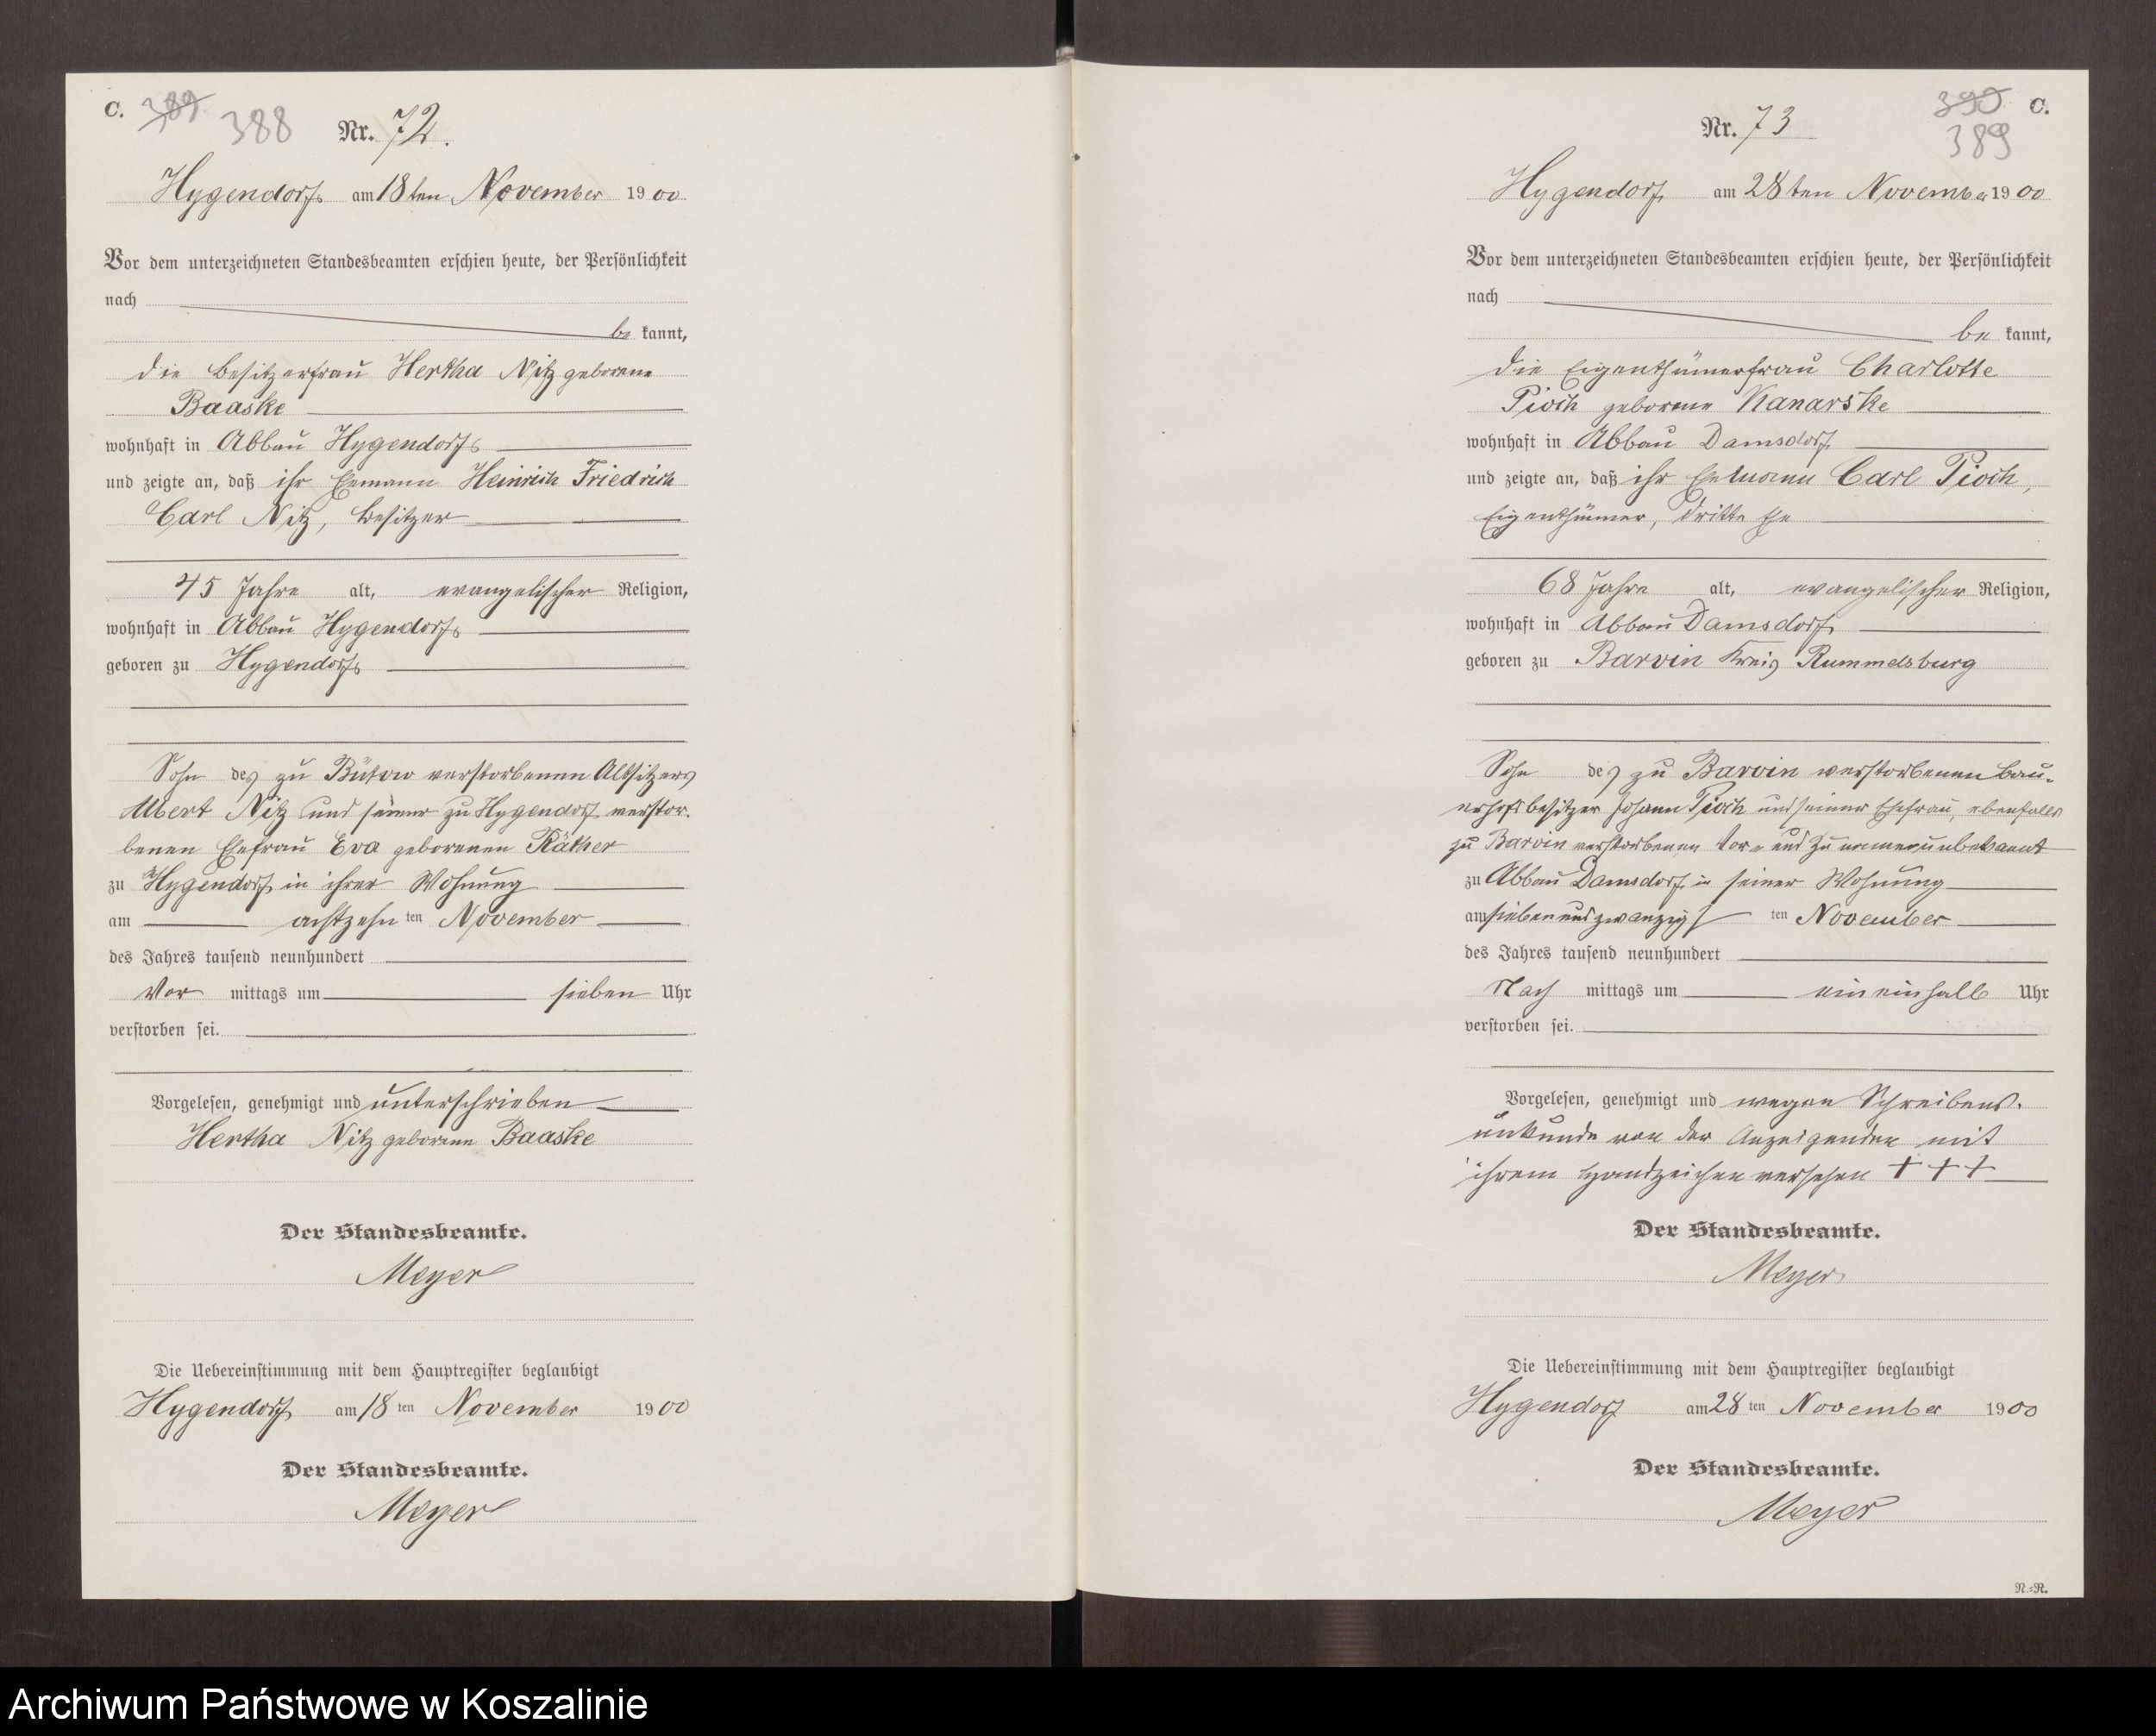 C. 389 388 Nr. 72.
Hygendorf am 18ten November 1900
Vor dem unterzeichneten Standesbeamten erschien heute, der Persönlichkeit
nach
be kannt,
die Besitzerfrau Hertha Nitz geborene
Baaske
wohnhaft in Abbau Hygendorf
und zeigte an, daß ihr Ehemann Heinrich Friedrich
Carl Nitz, Besitzer
45 Jahre alt, evangelischer Religion,
wohnhaft in Abbau Hygendorf
geboren zu Hygendorf
Sohn des zu Bütow verstorbenen Altsitzers
Albert Nitz und seiner zu Hygendorf verstor-
benen Ehefrau Eva geborenen Räther
zu Hygendorf in ihrer Wohnung
am achtzehn ten November
des Jahres tausend neunhundert
Vor mittags um sieben Uhr
verstorben sei.
Vorgelesen, genehmigt und unterschrieben
Hertha Nitz geborene Baaske
Der Standesbeamte.
Meyer
Die Uebereinstimmung mit dem Hauptregister beglaubigt
Hygendorf am 18 ten November 1900
Der Standesbeamte.
Meyer
Nr. 73 390 C.
389
Hygendorf am 28ten November 1900
Vor dem unterzeichneten Standesbeamten erschien heute, der Persönlichkeit
nach
be kannt,
die Eigenthümerfrau Charlotte
Pioch geborene Kanarske
wohnhaft in Abbau Damsdorf
und zeigte an, daß ihr Ehemann Carl Pioch,
Eigenthümer, dritte Ehe
68 Jahre alt, evangelischer Religion,
wohnhaft in Abbau Damsdorf
geboren zu Barvin Kreis Rummelsburg
Sohn des zu Barvin verstorbenen Bau-
erhofsbesitzer Johann Pioch und seiner Ehefrau, ebenfalls
zu Barvin verstorbenen Vor- und Zunamen unbekannt
zu Abbau Damsdorf in seiner Wohnung
am siebenundzwanzigs ten November
des Jahres tausend neunhundert
Nach mittags um eineinhalb Uhr
verstorben sei.
Vorgelesen, genehmigt und wegen Schreibens-
unkunde von der Anzeigenden mit
ihrem Handzeichen versehen + + +
Der Standesbeamte.
Meyer
Die Uebereinstimmung mit dem Hauptregister beglaubigt
Hygendorf am 28 ten November 1900
Der Standesbeamte.
Meyer
N.=N.
Archiwum Państwowe w Koszalinie